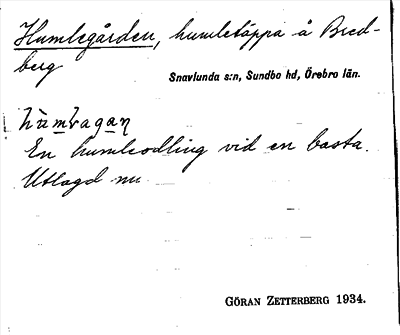 Humlegården, humletäppa å Bred-
berg
Snavlunda s:n, Sundbo hd, Örebro län.
En humleodling vid en basta.
Utlagd nu
GÖRAN ZETTERBERG 1934.